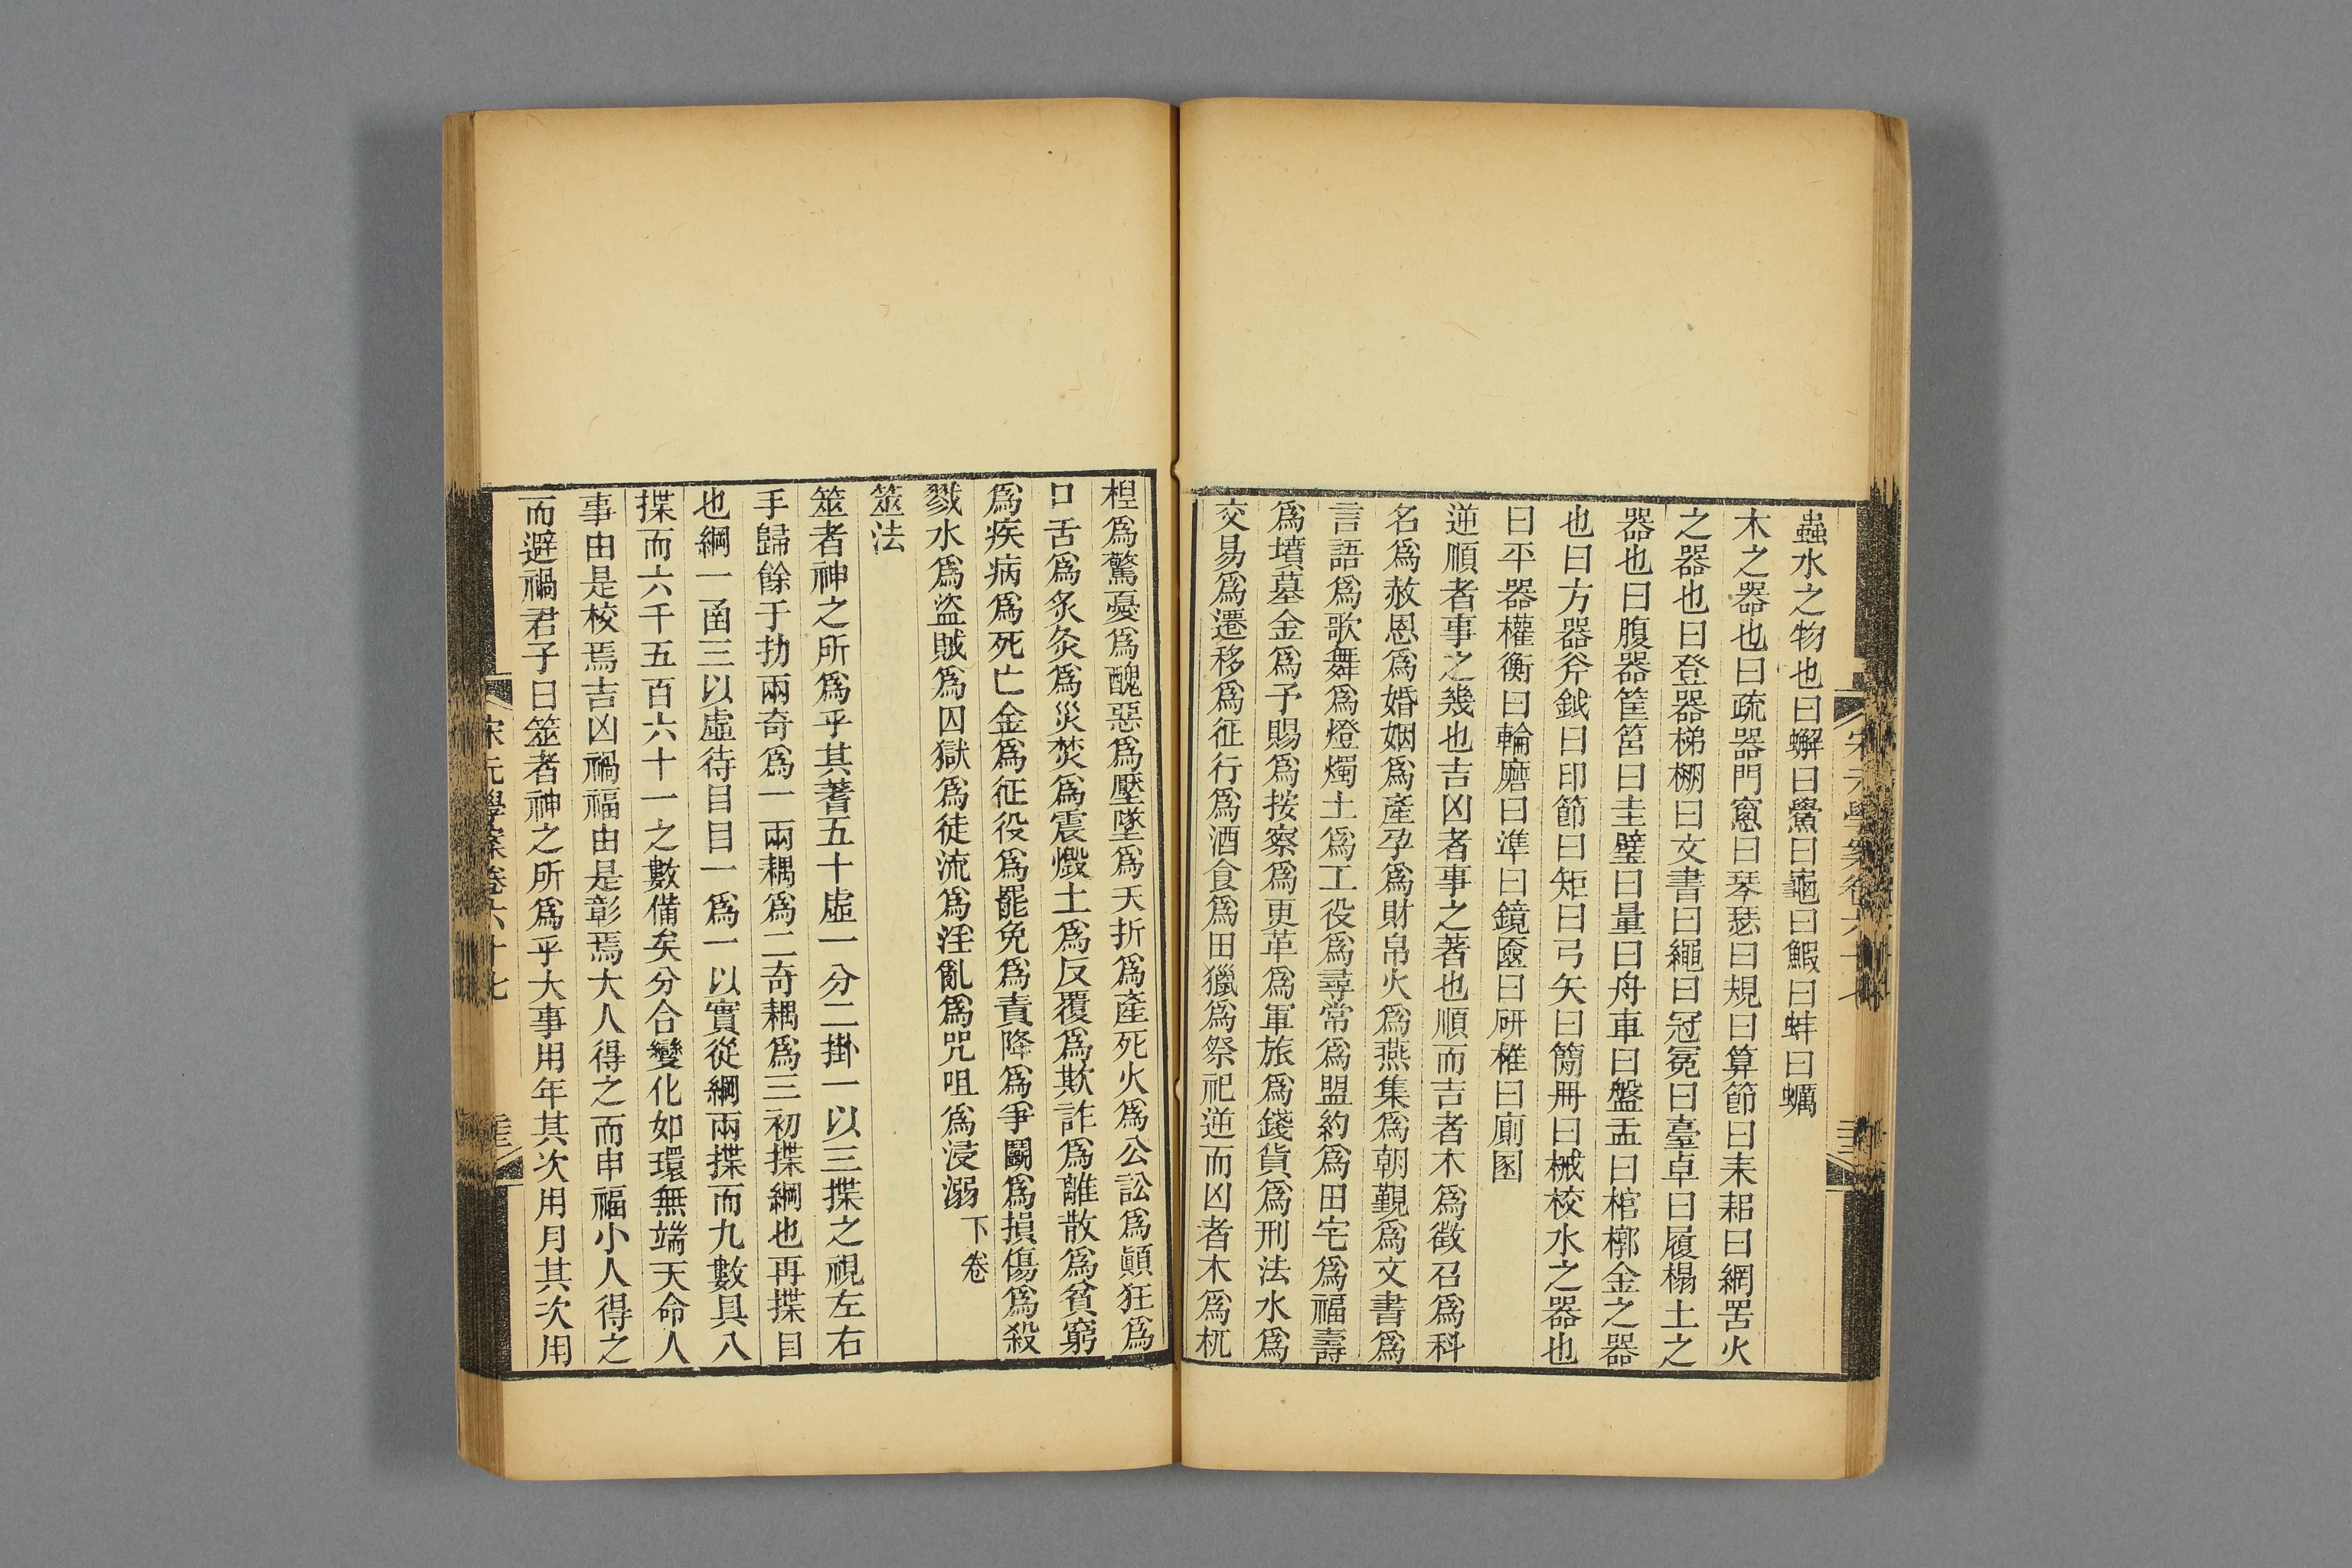 蟲水之物也曰蠏曰鱟曰龜曰鰕曰蚌曰蠣
木之器也曰疏器門窻曰琴瑟曰規曰算節曰耒耜曰網罟火
之器也曰登器梯棚曰文書曰繩曰冠冕曰臺卓曰履榻土之
器也曰腹器筐筥曰圭璧曰量曰舟車曰盤盂曰棺槨金之器
也曰方器斧鉞曰印節曰矩曰弓矢曰簡冊曰械校水之器也
曰平器權衡曰輪磨曰準曰鏡匳曰研椎曰廁圂
逆順者事之幾也吉凶者事之著也順而吉者木爲徵召爲科
名爲赦恩爲婚姻爲產孕爲財帛火爲燕集爲朝覲爲文書爲
言語爲歌舞爲燈燭土爲工役爲尋常爲盟約爲田宅爲福壽
爲墳墓金爲予賜爲按察爲更革爲軍旅爲錢貨爲刑法水爲
交易爲遷移爲征行爲酒食爲田獵爲祭祀逆而凶者木爲杌
宋元學案卷六十七
桯爲驚憂爲醜惡爲壓墜爲夭折爲產死火爲公訟爲顚狂爲
口舌爲炙灸爲災焚爲震燬土爲反覆爲欺詐爲離散爲貧窮
爲疾病爲死亡金爲征役爲罷免爲責降爲爭鬭爲損傷爲殺
戮水爲盜賊爲囚獄爲徒流爲淫亂爲咒咀爲浸溺下卷
筮法
筮者神之所爲乎其蓍五十虛一分二掛一以三揲之視左右
手歸餘于扐兩奇爲一兩耦爲二奇耦爲三初揲綱也再揲目
也綱一函三以虛待目目一爲一以實從綱兩揲而九數具八
揲而六千五百六十一之數備矣分合變化如環無端天命人
事由是校焉吉凶禍福由是彰焉大人得之而申福小人得之
而避禍君子曰筮者神之所爲乎大事用年其次用月其次用
宋元學案卷六十七